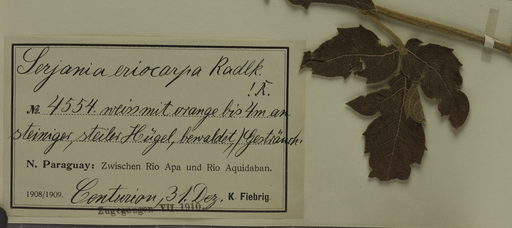 Serjania eriocarpa Radlk.
! R.
№ 4554. weiss mit orange bis 4m an
steiniger, steiler Hügel, bewaldet / Gesträuch.
N. Paraguay: Zwischen Rio Apa und Rio Aquidaban.
1908/1909. Centurion, 31. Dez. K. Fiebrig.
Zugegangen VII 1910.